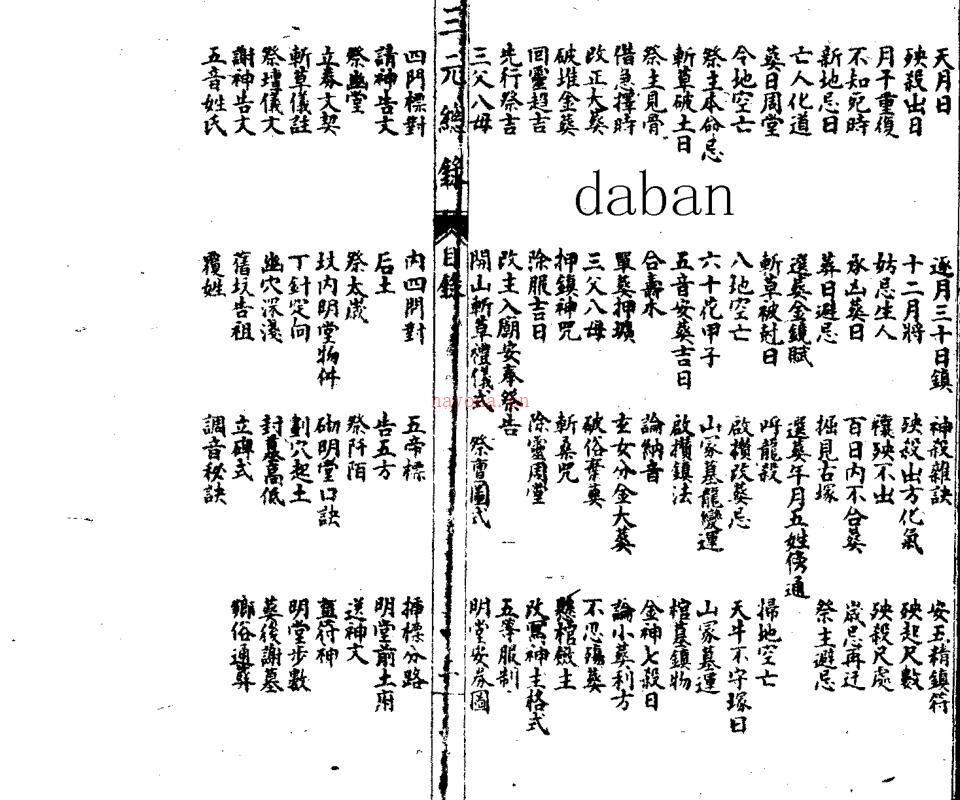 天月日
逐月三十日鎮
神殺雜訣
安五精鎮符
殃殺出日
十二月將
殃殺出方化氣
殃起尺數
月干重復
妨忌生人
禳殃不出
殃殺尺處
不知死時
承凶葬日
百日內不合葬
歲忌再迂
新地忌日
葬日避忌
掘見古塚
祭主避忌
亡人化道
選葬金鏡賦
選葬年月五姓傍通
葬日周堂
斬草破土日
呼龍殺
掃地空亡
今地空亡
八地空亡
啟攢改葬忌
天牛不守塚日
祭主本命忌
六十花甲子
山家墓龍變運
山家墓運
斬草破土日
五音安葬吉日
啟攢鎮法
棺墓鎮物
祭主見骨
合壽木
論納音
金神七殺日
借急擇時
單葬押壙
玄女分金大葬
論小葬利方
改正大葬
三父八母
破俗棄葬
不忍殤葬
破堆金葬
押鎮神咒
斬桑咒
懸棺殮主
回靈超吉
除服吉日
除靈周堂
改寫神主格式
先行祭吉
改主入廟安奉祭告
五等服制
三父八母
開山斬草禮儀式
祭曹圖式
明堂安券圖
三元總錄
目錄
四門標對
內四門對
五帝標
插標分路
請神告文
后土
告五方
明堂前土府
祭幽堂
祭太歲
祭阡陌
送神文
立券文契
坟內明堂物件
砌明堂口訣
蓋符神
斬草儀註
丁針定向
劃穴起土
明堂步數
祭壇儀文
幽穴深淺
封墓高低
葬後謝墓
謝神告文
舊坟告祖
立碑式
鄉俗通葬
五音姓氏
覆姓
調音秘訣
daban